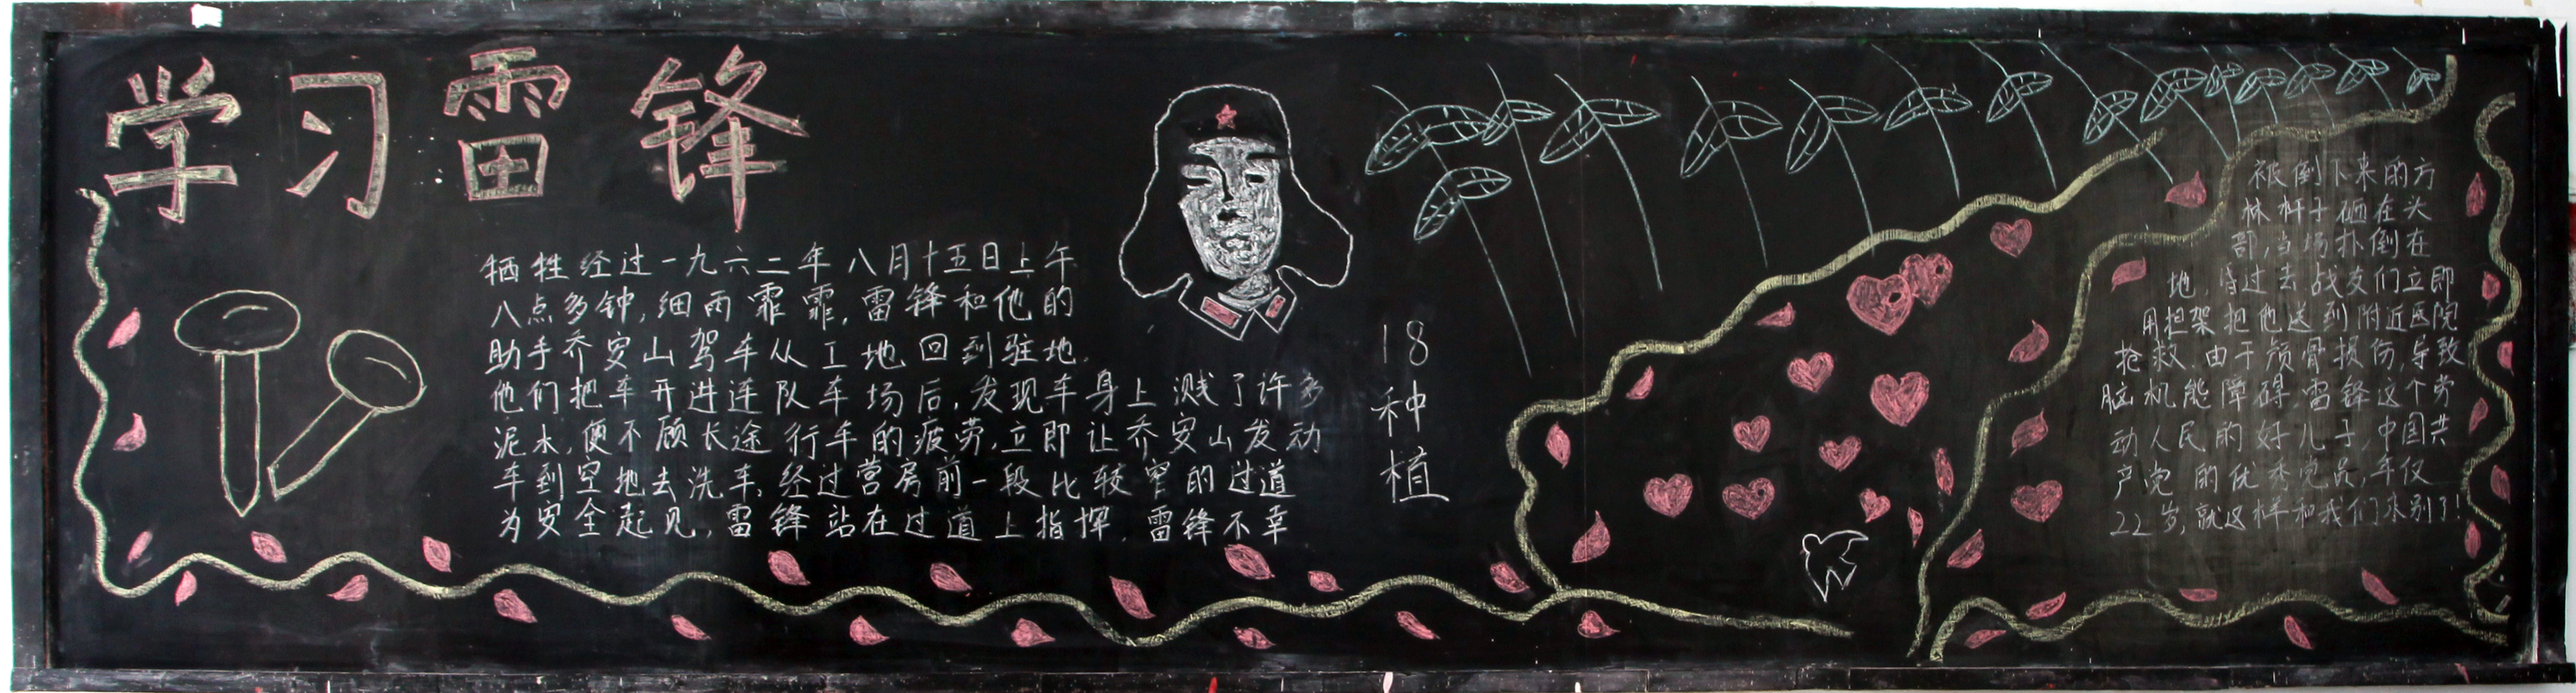 学习雷锋
牺牲经过一九六二年八月十五日上午
八点多钟,细雨霏霏,雷锋和他的
助手乔安山驾车从工地回到驻地.
他们把车开进连队车场后,发现车身上溅了许多
泥水,便不顾长途行车的疲劳,立即让乔安山发动
车到空地去洗车,经过营房前一段比较窄的过道
为安全起见,雷锋站在过道上指挥.雷锋不幸
18
种
植
被倒下来的方
林杆子砸在头
部,当场扑倒在
地,昏过去战友们立即
用担架把他送到附近医院
抢救.由于颅骨损伤,导致
脑机能障碍.雷锋这个劳
动人民的好儿子,中国共
产党的优秀党员,年仅
22岁,就这样和我们永别了!